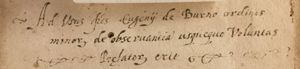 Ad Usus fris Eugenij de Burno ordinis
minor, de observantia usquequo Voluntas
Prelator, erit